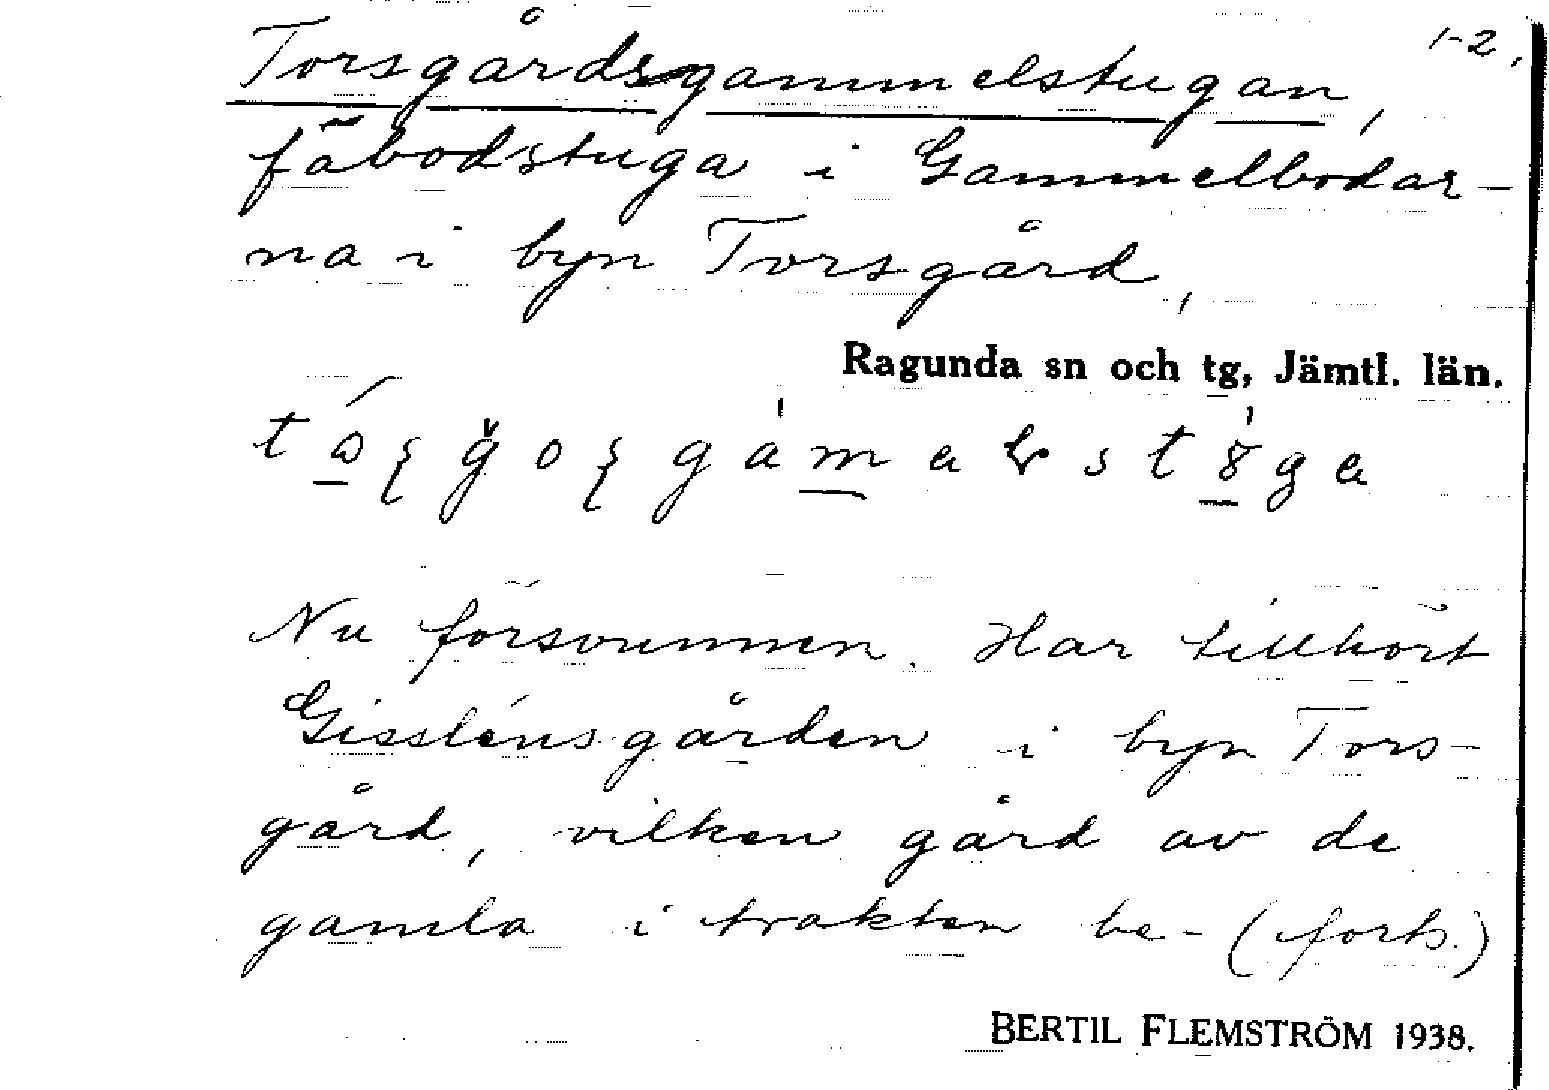 Torsgårdsgammelstugan, 1-2.
fäbodstuga i Gammelbodar-
na i byn Torsgård,
Ragunda sn och tg, Jämtl. län.
Nu försvunnen. Har tillhört
Gissléns gården i byn Tors-
gård, vilken gård av de
gamla i trakten be- (forts.)
BERTIL FLEMSTRÖM 1938.